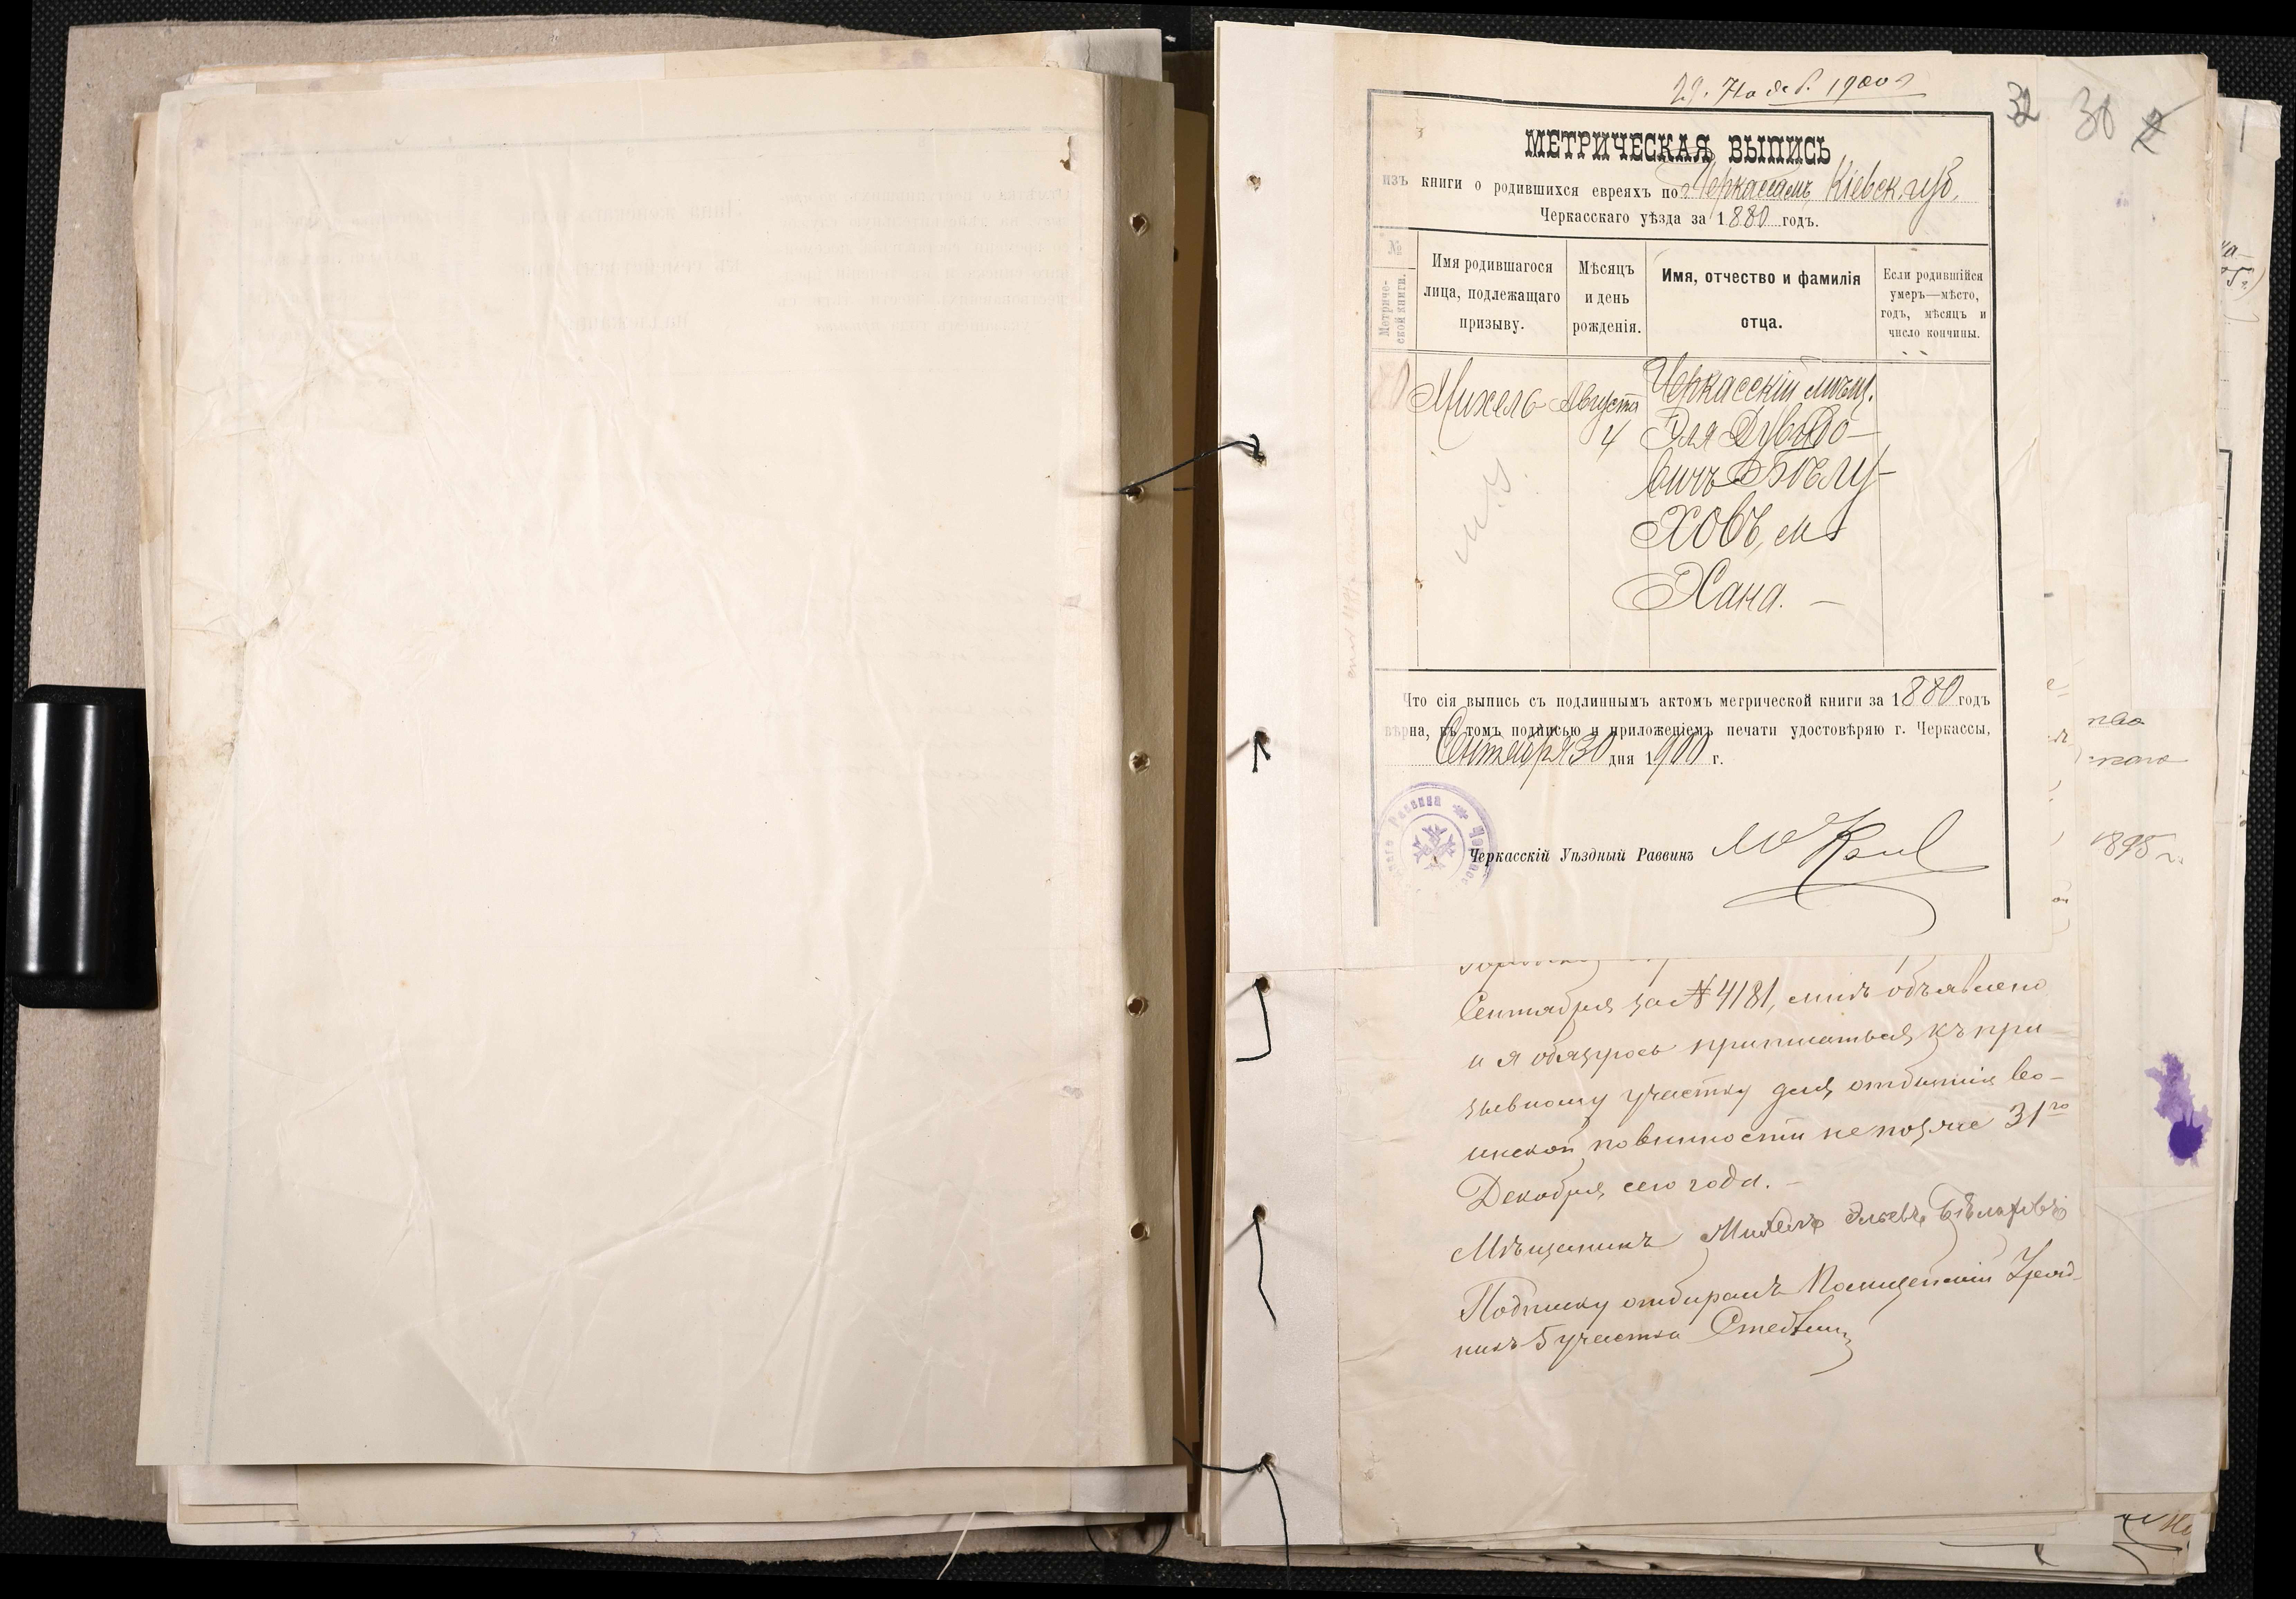 29. Нояб. 1900 г
32 30
МЕТРИЧЕСКАЯ ВЫПИСЬ
изъ книги о родившихся евреяхъ по г. Черкассамъ, Кіевск. губ.
Черкасскаго уѣзда за 1880 годъ.
№ Метриче-ской книги.
Имя родившагося лица, подлежащаго призыву.
Мѣсяцъ и день рожденія.
Имя, отчество и фамилія отца.
Если родившійся умеръ—мѣсто, годъ, мѣсяцъ и число кончины.
Михель Августа Черкасскій мѣщ.
4 Эля Дувидо-
вичъ Бѣлу-
ховъ, м
Хана. —
Что сія выпись съ подлиннымъ актомъ метрической книги за 1880 годъ
вѣрна, въ томъ подписью и приложеніемъ печати удостовѣряю г. Черкассы,
Сентября 30 дня 1900 г.
Черкасскій Уѣздный Раввинъ
Сентября за № 4181, мнѣ объявлено
и я обязуюсь приписаться къ при-
зывному участку для отбытія во-
инской повинности не позже 31го
Декабря сего года. —
Мѣщанинъ Михель Эльевъ Бѣлуховъ
Подписку отбиралъ Полицейскій Уряд-
никъ 5 участка
1895 г.